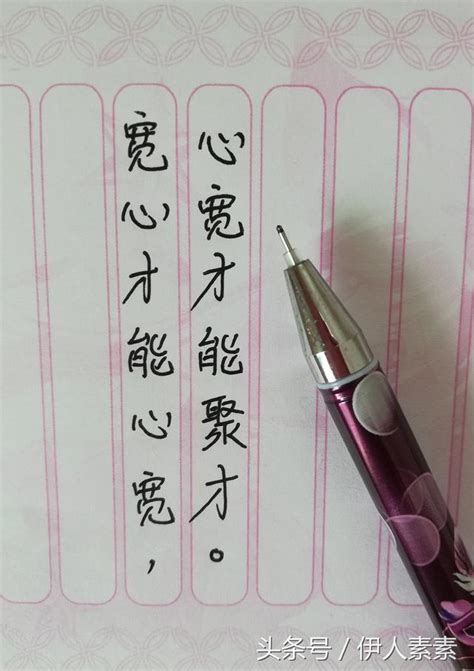 宽心才能心宽，
心宽才能聚才。
头条号/伊人素素